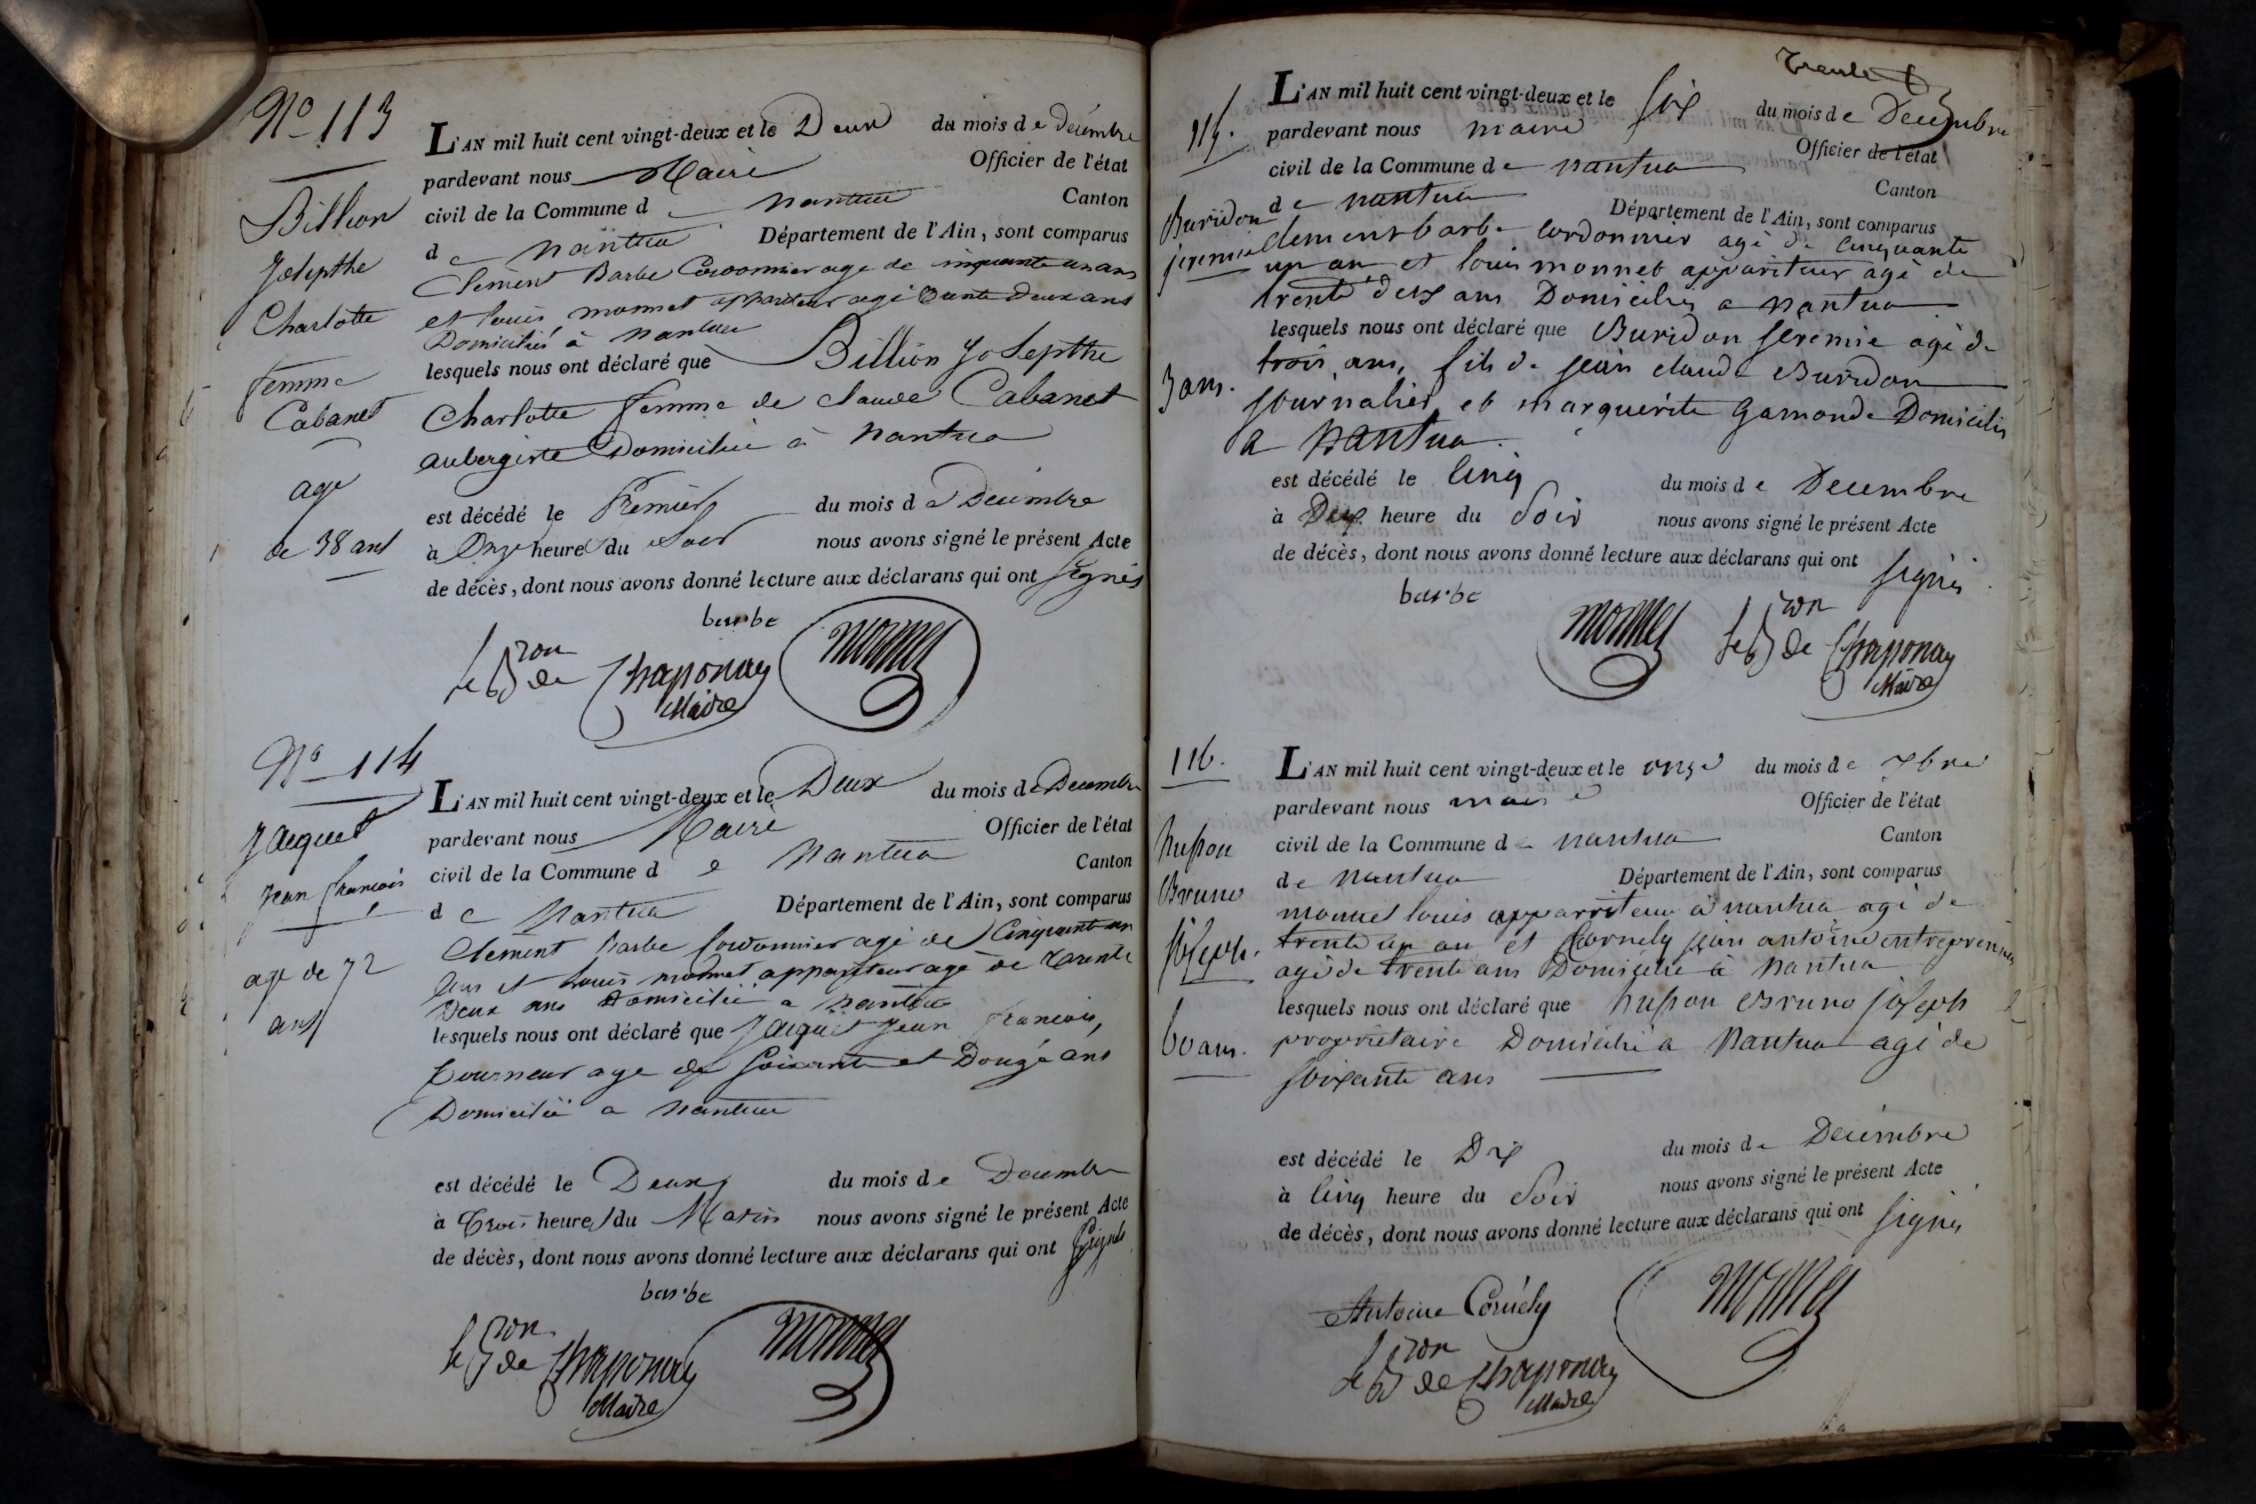 No 113
Billion
Josepthe
Charlotte
femme
Cabanet
age
de 38 ans
L'AN mil huit cent vingt-deux et le Deux du mois de décembre
pardevant nous Maire Officier de l'état
civil de la Commune de Nantua Canton
de Nantua Département de l'Ain, sont comparus
Clement Barbe Cordonnier age de cinquante un ans
et Louis monnet appariteur agé trente Deux ans
Domiciliés à Nantua
lesquels nous ont déclaré que Billion Josepthe
Charlotte femme de claude Cabanet
aubergiste Domiciliée à Nantua
est décédé le Premier du mois de Décembre
à Onze heure du Soir nous avons signé le présent Acte
de décès, dont nous avons donné lecture aux déclarans qui ont signés
barbe
le Bron de Chaponay
Maire
monnet
No 114
Jacquet
Jean francois
age de 72
ans
L'AN mil huit cent vingt-deux et le Deux du mois de Decembre
pardevant nous Maire Officier de l'état
civil de la Commune de Nantua Canton
de Nantua Département de l'Ain, sont comparus
Clement Barbe Cordonnier agé de Cinquante un
ans et Louis monnet appariteur agé de trente
Deux ans Domicilié a Nantua
lesquels nous ont déclaré que Jacquet Jean francois,
tourneur age de Soixante et Douze ans
Domicilié a Nantua
est décédé le Deux du mois de Decembre
à Trois heure du Matin nous avons signé le présent Acte
de décès, dont nous avons donné lecture aux déclarans qui ont signés
barbe
le Bron de Chaponay
Maire
monnet
trente
115.
Buridon
jeremie
3 ans.
L'AN mil huit cent vingt-deux et le six du mois de Decembre
pardevant nous maire Officier de l'état
civil de la Commune de nantua Canton
de nantua Département de l'Ain, sont comparus
clement barbe cordonnier agé de cinquante
un an et louis monnet appariteur agé de
trente deux ans Domiciliés a nantua
lesquels nous ont déclaré que Buridon jeremie agé de
trois ans, fils de jean claude Buridon
journalier et marguerite Gamonde Domiciliés
a Nantua.
est décédé le cinq du mois de Decembre
à Dix heure du Soir nous avons signé le présent Acte
de décès, dont nous avons donné lecture aux déclarans qui ont signés
barbe
monnet
le Bron de Chaponay
Maire
116.
husson
Bruno
joseph.
60 ans.
L'AN mil huit cent vingt-deux et le onze du mois de xbre
pardevant nous maire Officier de l'état
civil de la Commune de nantua Canton
de nantua Département de l'Ain, sont comparus
monnet louis appariteur à nantua agé de
trente un an et Cornely jean antoine entrepreneur
agé de trente ans Domicilié à nantua
lesquels nous ont déclaré que husson Bruno joseph
propriétaire Domicilié a Nantua agé de
soixante ans
est décédé le Dix du mois de Décembre
à cinq heure du Soir nous avons signé le présent Acte
de décès, dont nous avons donné lecture aux déclarans qui ont signés
Antoine Cornély
monnet
le Bron de Chaponay
Maire